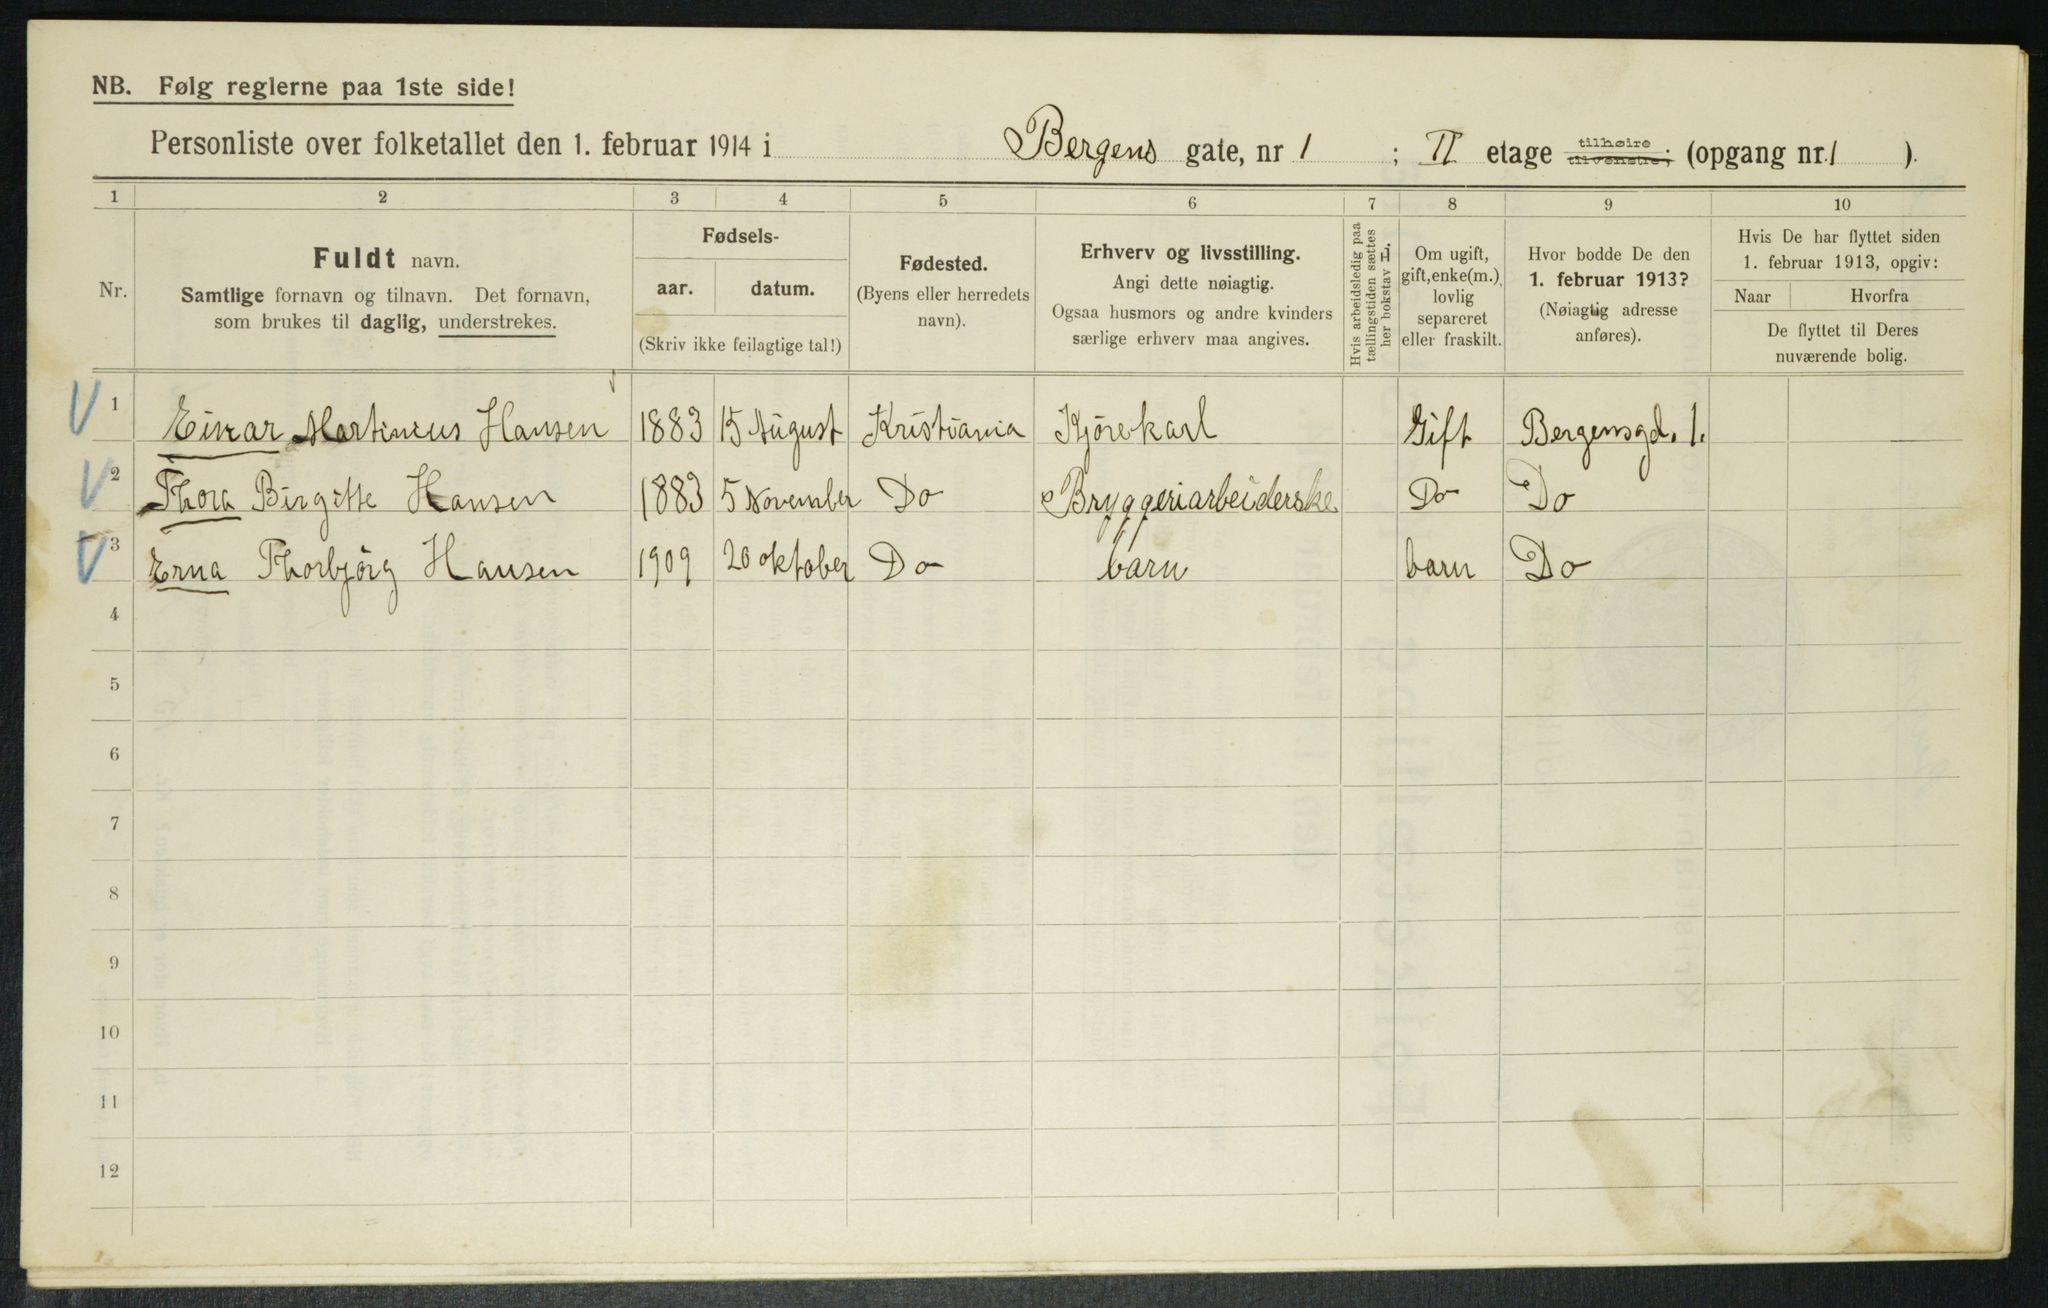 NB. Følg reglerne paa 1ste side!
Personliste over folketallet den 1. februar 1914 i Bergens gate, nr 1 ; II etage tilhøire tilvenstre; (opgang nr. 1 ).
1 2 3 4 5 6 7 8 9 10
Nr.
Fuldt navn.
Samtlige fornavn og tilnavn. Det fornavn,
som brukes til daglig, understrekes.
Fødsels-
aar. datum.
(Skriv ikke feilagtige tal!)
Fødested.
(Byens eller herredets
navn).
Erhverv og livsstilling.
Angi dette nøiagtig.
Ogsaa husmors og andre kvinders
særlige erhverv maa angives.
Hvis arbeidsledig paa
tællingstiden sættes
her bokstav L.
Om ugift,
gift, enke(m.),
lovlig
separeret
eller fraskilt.
Hvor bodde De den
1. februar 1913?
(Nøiagtig adresse
anføres).
Hvis De har flyttet siden
1. februar 1913, opgiv:
Naar Hvorfra
De flyttet til Deres
nuværende bolig.
1 Einar Martinius Hansen 1883 15 August Kristiania Kjørekarl Gift Bergensgd. 1.
2 Thora Birgitte Hansen 1883 5 November Do Bryggeriarbeiderske Do Do
3 Erna Thorbjörg Hansen 1909 20 oktober Do barn barn Do
4
5
6
7
8
9
10
11
12